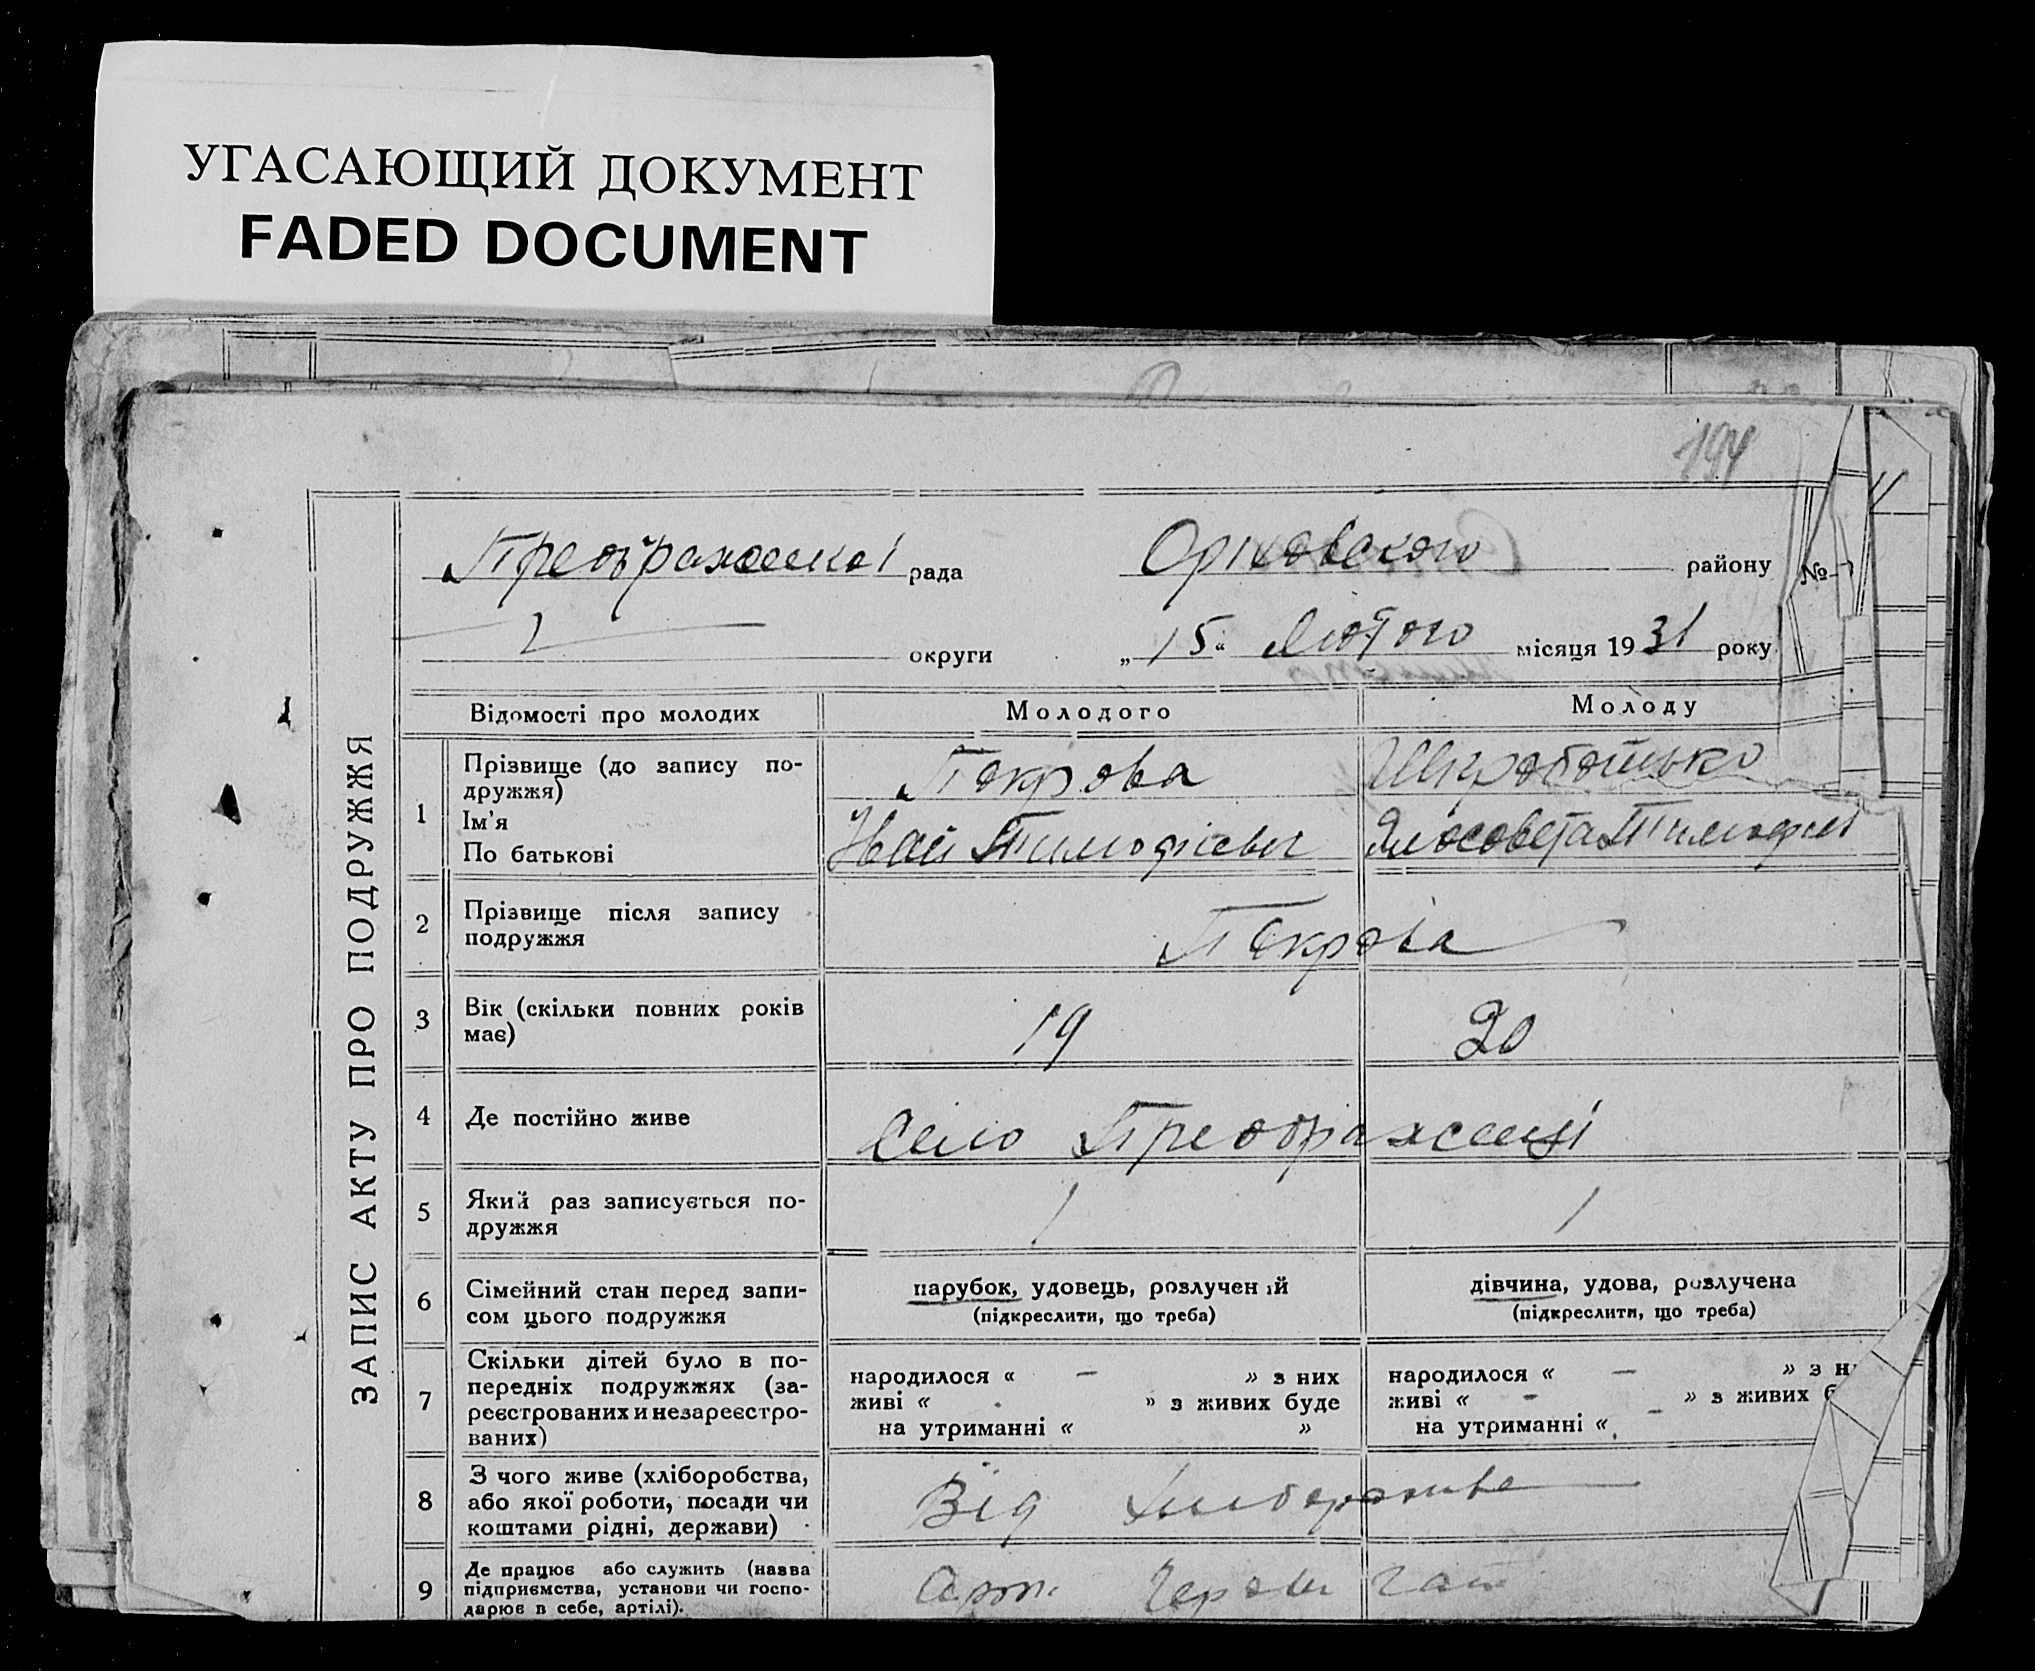 УГАСАЮЩИЙ ДОКУМЕНТ
FADED DOCUMENT
194
рада
Оріховского району №
округи „15“ Лютого місяця 1931 року
ЗАПИС АКТУ ПРО ПОДРУЖЖЯ
Відомості про молодих Молодого Молоду
1 Прізвище (до запису по-
дружжя)
Ім'я
По батькові
Покрова
Иван Тимофієвич
2 Прізвище після запису
подружжя
Покрова
3 Вік (скільки повних років
має)
19 20
4 Де постійно живе
Село
5 Який раз записується по-
дружжя
1 1
6 Сімейний стан перед запи-
сом цього подружжя
парубок, удовець, розлучений
(підкреслити, що треба)
дівчина, удова, розлучена
(підкреслити, що треба)
7 Скільки дітей було в по-
передніх подружжях (за-
реєстрованих и незареєстро-
ваних)
народилося « – » з них
живі « » з живих буде
на утриманні « »
народилося « – » з н
живі « - » з живих б
на утриманні « –
8 З чого живе (хліборобства,
або якої роботи, посади чи
коштами рідні, держави)
Від
9 Де працює або служить (назва
підприємства, установи чи госпо-
дарює в себе, артілі).
Арт.